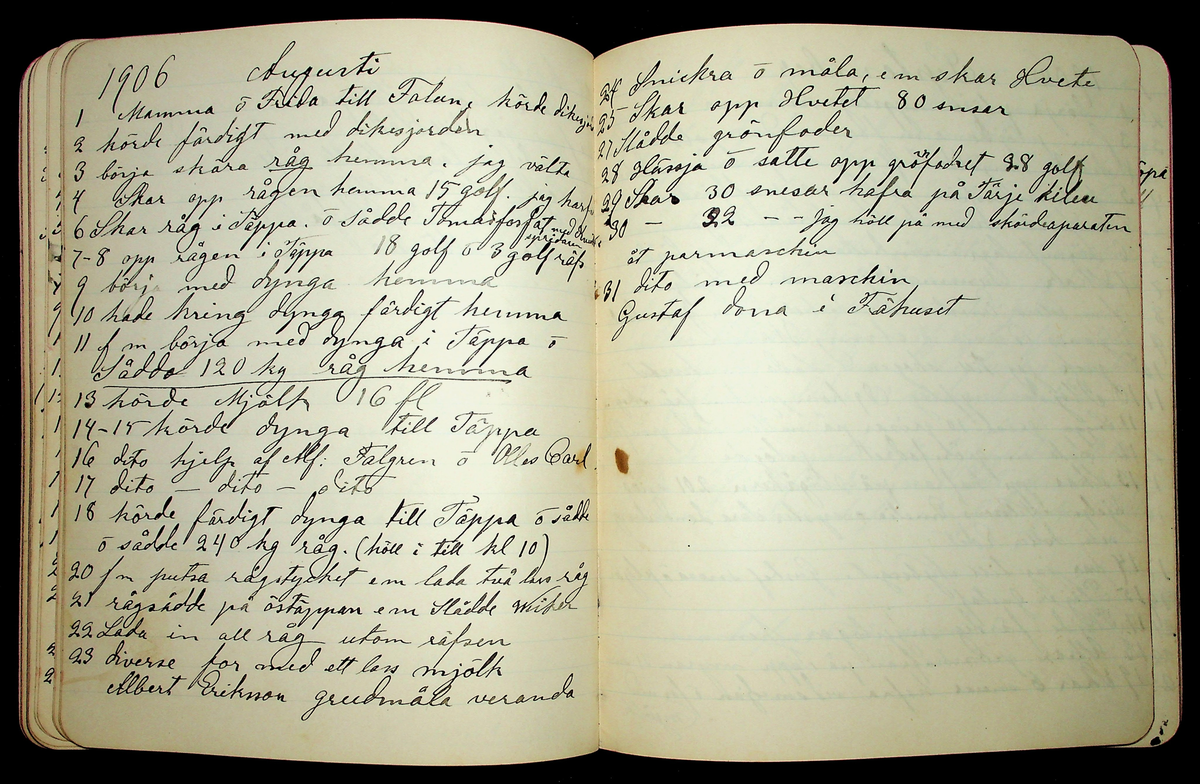 1906 Augusti
1 Mamma o Frida till Falun, körde dikesjord
2 körde färdigt med dikesjorden
3 börja skära råg hemma. jag välta
4 Skar opp rågen hemma 15 golf, jag harf
6 Skar råg i Täppa. o sådde Tomasfosfat med
spridaren
7-8 opp rågen i Täppa 18 golf o 3 golf räfs
9 börj med dynga hemma
10 hade kring dynga färdigt hemma
11 f m börja med dynga i Täppa o
Sådde 120 kg råg hemma
13 körde Mjölk 16 fl
14-15 körde dynga till Täppa
16 dito hjelp af Alf: Falgren o Olles Carl
17 dito - dito - dito
18 körde färdigt dynga till Täppa o sådde
o sådde 240 kg råg. (höll i till kl 10)
20 f m putsa rågstycket e m lada två lass råg
21 rågsådde på östäppan e m Slådde
22 Lada in all råg utom räfsen
23 diverse for med ett lass mjölk
Albert Eriksson grudmåla veranda
24 Snickra o måla, e m skar Hvete
25 - Skar opp Hvetet 80 snsar
27 Slådde grönfoder
28 Hässja o satte opp gröfodret 38 golf
29 Skar 30 snesar hafra på Färje
30 - 22 - - jag höll på med skördeaparaten
åt parmaschin
31 dito med maschin
Gustaf dona i Fähuset